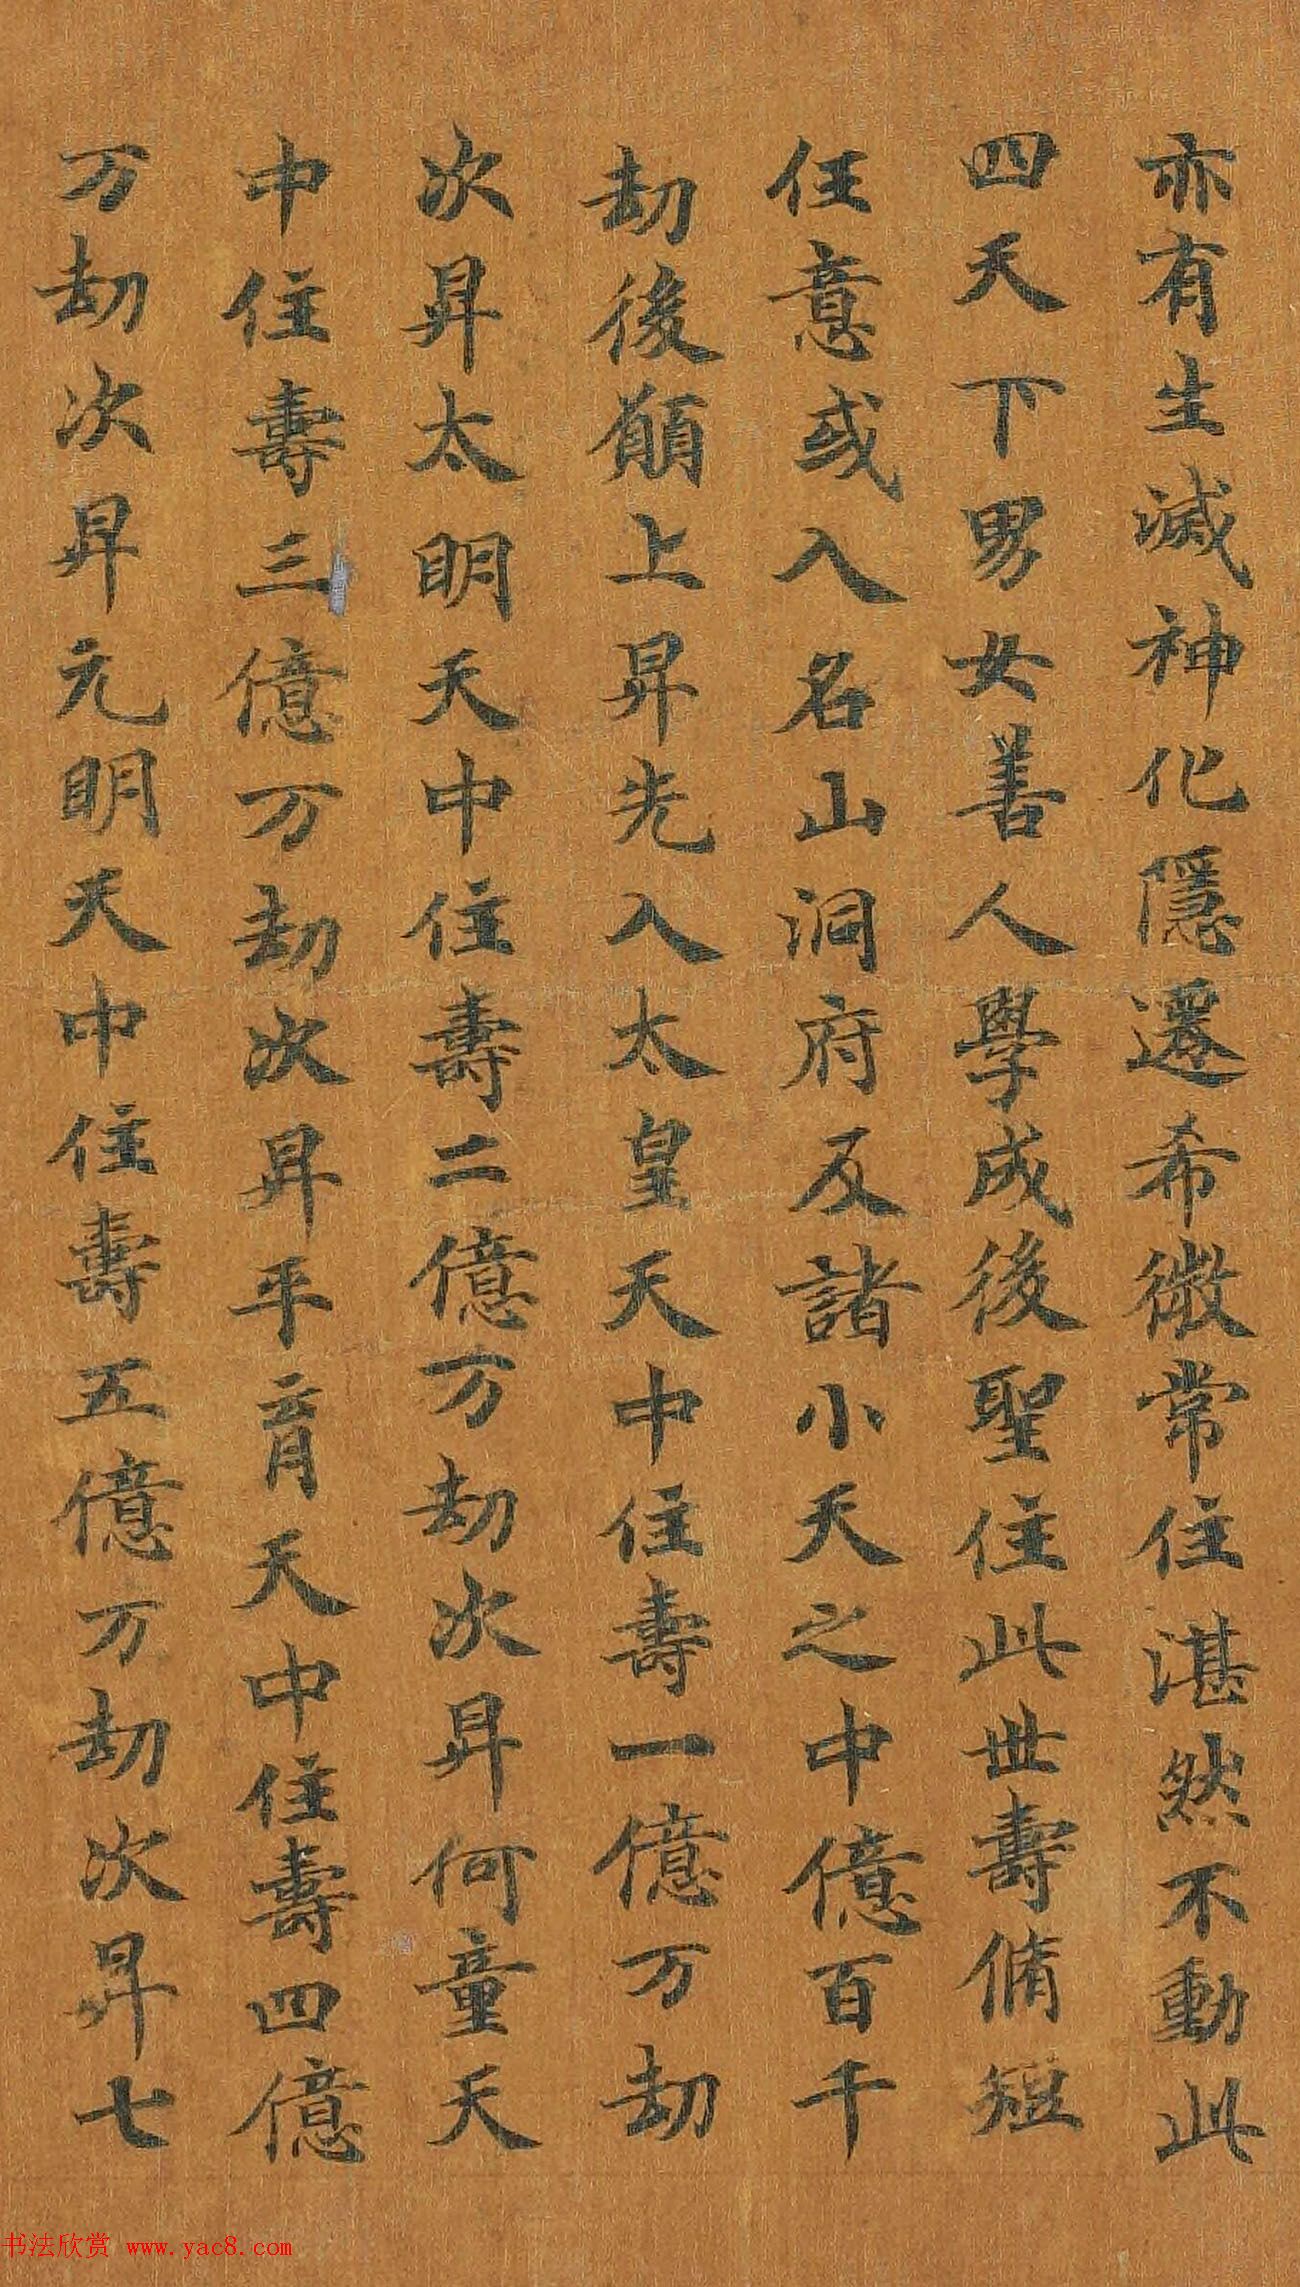 亦有生滅神化隱遷希微常住湛然不動此
四天下男女善人學成後聖住此世壽脩短
任意或入名山洞府及諸小天之中億百千
劫後願上昇先入太皇天中住壽一億万劫
次昇太明天中住壽二億万劫次昇何童天
中住壽三億万劫次昇平育天中住壽四億
万劫次昇元明天中住壽五億万劫次昇七
书法欣赏 www.yac8.com